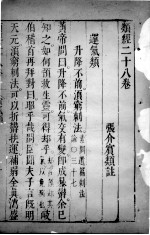 類經二十八卷
張介賓類註
運氣類
升降不前須窮刺法
黃帝問曰升降不前氣交有變即成暴鬱余已
知之如何預救生靈可得却乎 岐
伯稽首再拜對曰昭乎哉問臣聞夫子言既明
天元須窮刺法可以折鬱扶運補弱全眞瀉盛